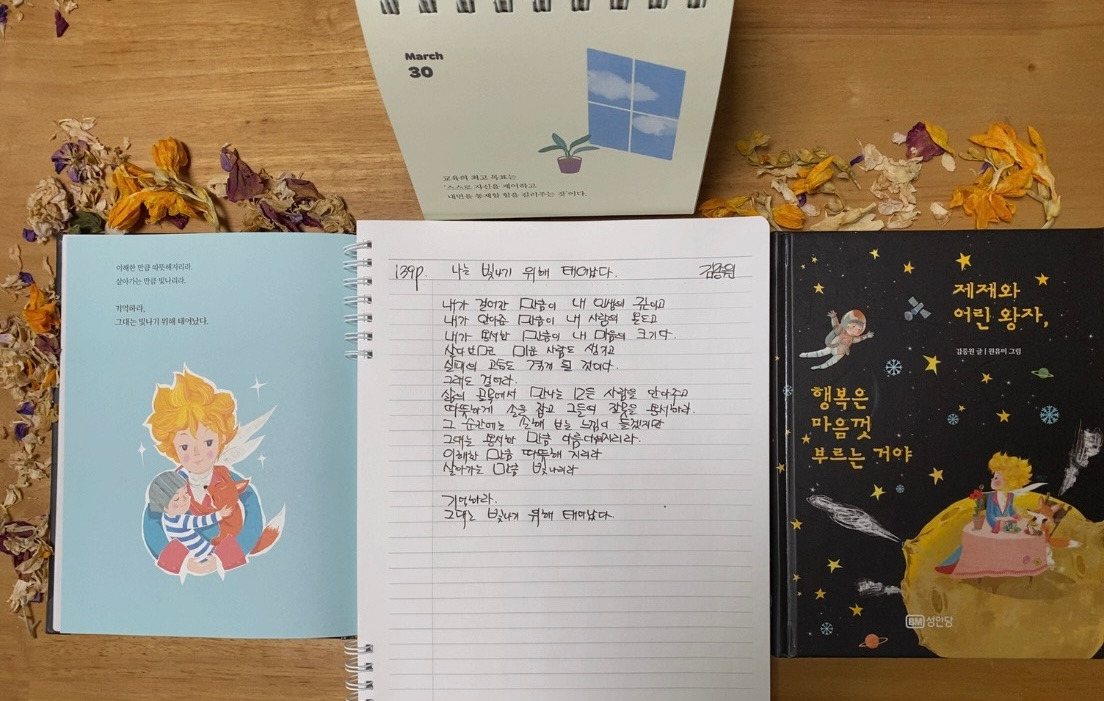 March
30
교육의 최고 목표는
'스스로 자신을 제어하고
내면을 통제할 힘을 길러주는 것'이다.
이해한 만큼 따뜻해지리라.
살아가는 만큼 빛나리라.
기억하라,
그대는 빛나기 위해 태어났다.
139p. 나는 빛나기 위해 태어났다. 김종원
내가 걸어간 만큼이 내 인생의 규모이고
내가 안아준 만큼이 내 사랑의 온도고
내가 용서한 만큼이 내 마음의 크기다.
살다보면 미운 사람도 생기고
실패의 고통도 겪게 될 것이다.
그래도 걸어라.
삶의 골목에서 만나는 모든 사람을 안아주고
따뜻하게 손을 잡고 그들의 잘못을 용서하라.
그 순간에는 손해 보는 느낌이 들겠지만
그대는 용서한 만큼 아름다워지리라.
이해한 만큼 따뜻해 지리라
살아가는 만큼 빛나리라
기억하라.
그대는 빛나기 위해 태어났다.
제제와
어린 왕자,
김종원 글 | 원유미 그림
행복은
마음껏
부르는 거야
BM 성안당